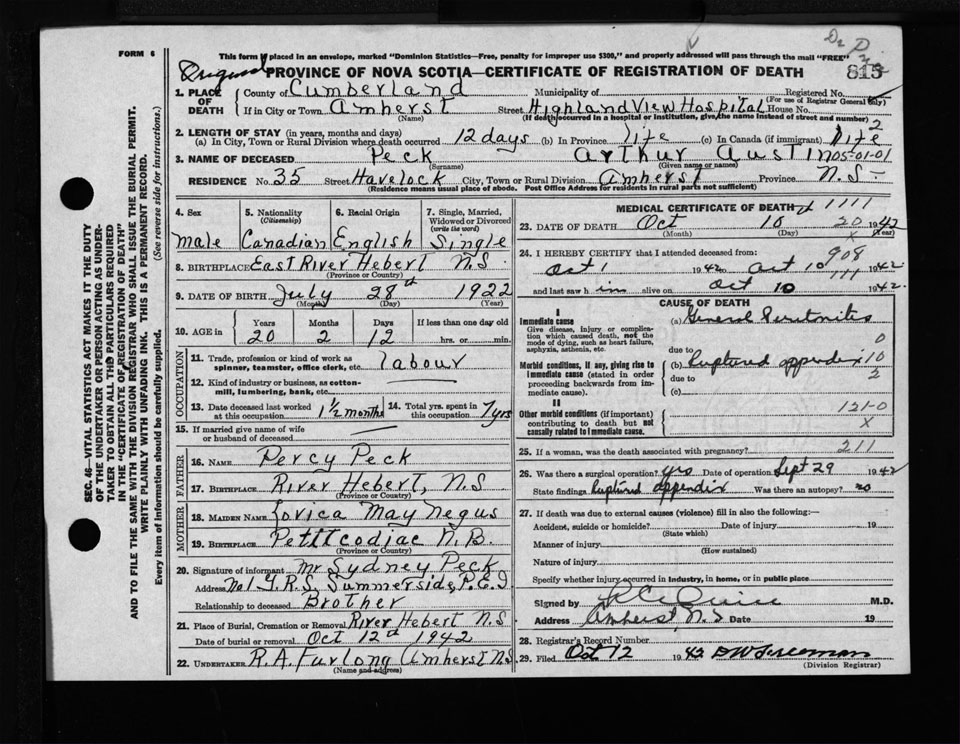 FORM 6
This form if placed in an envelope, marked "Dominion Statistics—Free, penalty for improper use $300," and properly addressed will pass through the mail "FREE"
Original
PROVINCE OF NOVA SCOTIA—CERTIFICATE OF REGISTRATION OF DEATH
815
1. PLACE OF DEATH
County of Cumberland Municipality of Registered No.
(For use of Registrar General only)
If in City or Town Amherst Street Highland View Hospital House No.
(Name) (If death occurred in a hospital or institution, give the name instead of street and number)
2. LENGTH OF STAY (in years, months and days)
(a) In City, Town or Rural Division where death occurred 12 days (b) In Province life (c) In Canada (if immigrant) life
3. NAME OF DECEASED Peck Arthur Austin 05-01-01
(Surname) (Given name or names)
RESIDENCE No. 35 Street Havelock City, Town or Rural Division Amherst Province N.S.
(Residence means usual place of abode. Post Office Address for residents in rural parts not sufficient)
4. Sex Male
5. Nationality (Citizenship) Canadian
6. Racial Origin English
7. Single, Married, Widowed or Divorced (write the word) Single
8. BIRTHPLACE East River Hebert N.S.
(Province or Country)
9. DATE OF BIRTH July 28th 1922
(Month) (Day) (Year)
10. AGE in Years 20 Months 2 Days 12 If less than one day old hrs. or min.
OCCUPATION
11. Trade, profession or kind of work as spinner, teamster, office clerk, etc. labour
12. Kind of industry or business, as cotton-mill, lumbering, bank, etc.
13. Date deceased last worked at this occupation 1½ months
14. Total yrs. spent in this occupation 7 yrs
15. If married give name of wife or husband of deceased
FATHER
16. NAME Percy Peck
17. BIRTHPLACE River Hebert, N.S
(Province or Country)
MOTHER
18. MAIDEN NAME May Negus
19. BIRTHPLACE Petitcodiac N.B.
(Province or Country)
20. Signature of informant Mr Sydney Peck
Address Summerside, P.E.I
Relationship to deceased Brother
21. Place of Burial, Cremation or Removal River Hebert N.S
Date of burial or removal Oct 12th 1942
22. UNDERTAKER R.A. Furlong Amherst N.S
(Name and address)
MEDICAL CERTIFICATE OF DEATH 1111
23. DATE OF DEATH Oct 10 20 1942
(Month) (Day) (Year)
24. I HEREBY CERTIFY that I attended deceased from:
908
Oct 1 1942 to Oct 10 1942
111
and last saw him alive on Oct 10 1942
CAUSE OF DEATH
I
Immediate cause
Give disease, injury or complication which caused death, not the mode of dying, such as heart failure, asphyxia, asthenia, etc.
(a) General Peritonitis
0
due to
Morbid conditions, if any, giving rise to immediate cause (stated in order proceeding backwards from immediate cause).
(b) Ruptured appendix 10
due to 2
(c)
II
Other morbid conditions (if important) contributing to death but not causally related to immediate cause.
121-0
X
25. If a woman, was the death associated with pregnancy? 211
26. Was there a surgical operation? yes Date of operation Sept 29 1942
State findings Ruptured appendix Was there an autopsy? no
27. If death was due to external causes (violence) fill in also the following:—
Accident, suicide or homicide? Date of injury 19
(State which)
Manner of injury
(How sustained)
Nature of injury
Specify whether injury occurred in industry, in home, or in public place
Signed by M.D.
Address Amherst, N.S Date 19
28. Registrar's Record Number
29. Filed Oct 12 1942
(Division Registrar)
SEC. 46—VITAL STATISTICS ACT MAKES IT THE DUTY
OF THE UNDERTAKER OR PERSON ACTING AS UNDER-
TAKER TO OBTAIN ALL THE PARTICULARS REQUIRED
IN THE "CERTIFICATE OF REGISTRATION OF DEATH"
AND TO FILE THE SAME WITH THE DIVISION REGISTRAR WHO SHALL ISSUE THE BURIAL PERMIT.
WRITE PLAINLY WITH UNFADING INK. THIS IS A PERMANENT RECORD.
Every item of information should be carefully supplied. (See reverse side for instructions.)